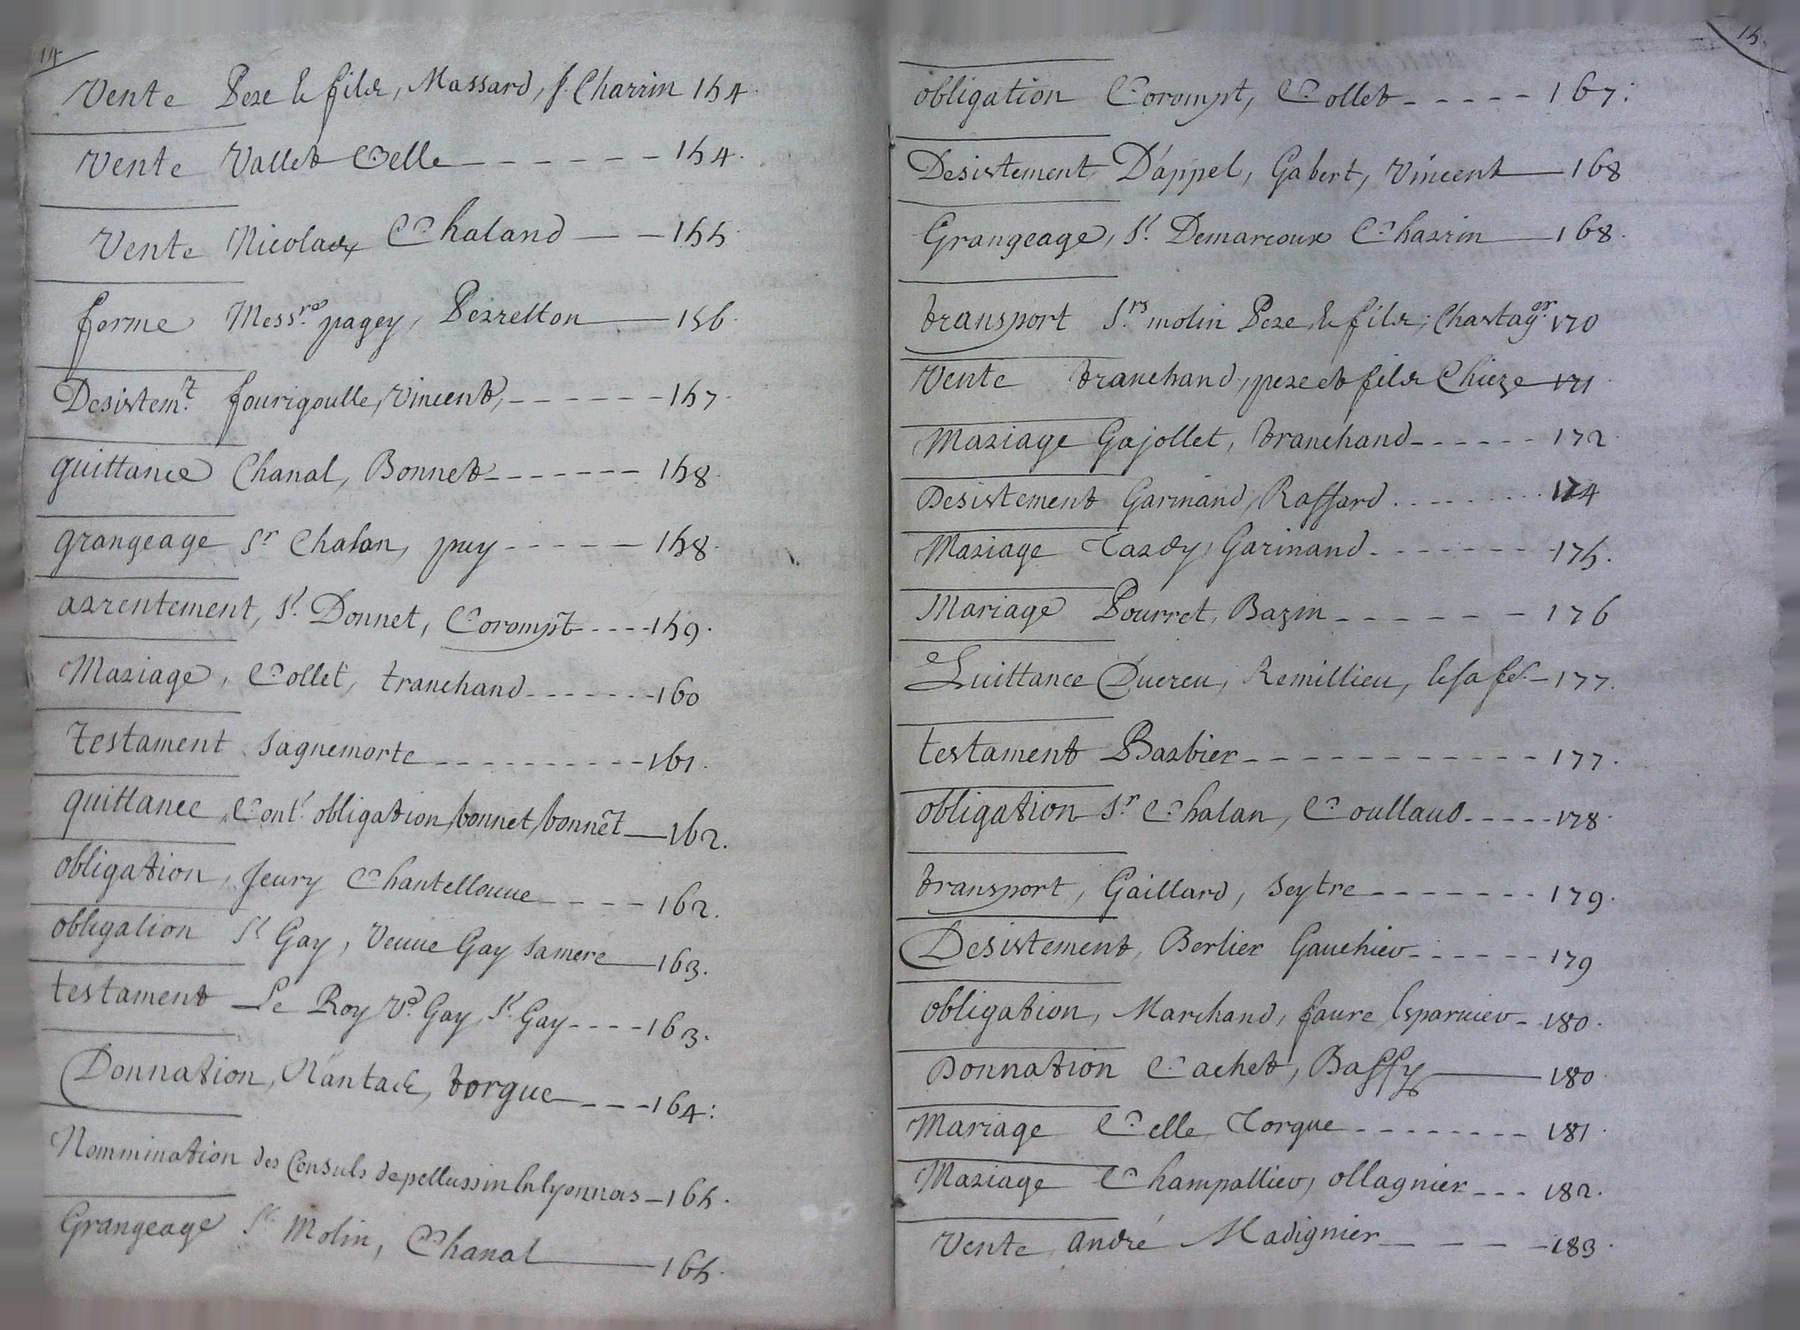 14
Vente Pere & fils, Massard, f. Charrin 154.
Vente Vallet Celle - - - - - - 154.
Vente Nicolas Chaland - - 155
ferme Messr. pagey, Perrelton 156.
Desistemt. fourigoulle, Vincent, - - - - - - 157.
quittance Chanal, Bonnet - - - - - - 158.
grangeage Sr Chalan, puy - - - - - 158.
arrentement, Sr. Donnet, Corompt - - - - 159.
Mariage, Collet, tranchand - - - - - - 160
testament Sagnemorte - - - - - - - - - - 161.
quittance, Cont. obligation, bonnet, bonnet 162.
obligation, feury Chantellouue - - - - 162.
obligation Sr Gay, Veuue Gay Sa mere 163.
testament Le Roy Ve. Gay, Sr. Gay - - - - 163.
Donnation, Nantas, torgue - - - 164:
Nommination des Consuls de pellussin en lyonnois - 165.
Grangeage Sr. Molin, Chanal 165.
15.
obligation Corompt, Collet - - - - - 167:
Desistement D'appel, Gabert, Vincent 168
Grangeage, Sr. Demarcoux Charrin 168.
transport Srs. molin Pere & fils, Chastagr. 170
Vente tranchand, pere et fils Chieze 171.
Mariage Gajollet, tranchand - - - - - - 172.
Desistement Garinand, Raffard . . . . . . . . 174
Mariage Tardy, Garinand - - - - - - - 175.
Mariage Pourret, Bazin - - - - - - 176
Quittance Ducreu, Remillieu, & sa fe. - 177.
testament Barbier - - - - - - - - - - - - 177.
obligation Sr Chalan, Coullaud - - - - - 178.
transport, Gaillard, Seytre - - - - - - - 179.
Desistement, Berlier Gauchieu - - - - - - 179
obligation, Marchand, faure Esparuieu - 180.
Donnation Cachet, Baffy 180.
Mariage Celle Torgue - - - - - - - - 181.
Mariage Champallieu, ollagnier - - - 182.
Vente, andré Madignier - - - - 183.